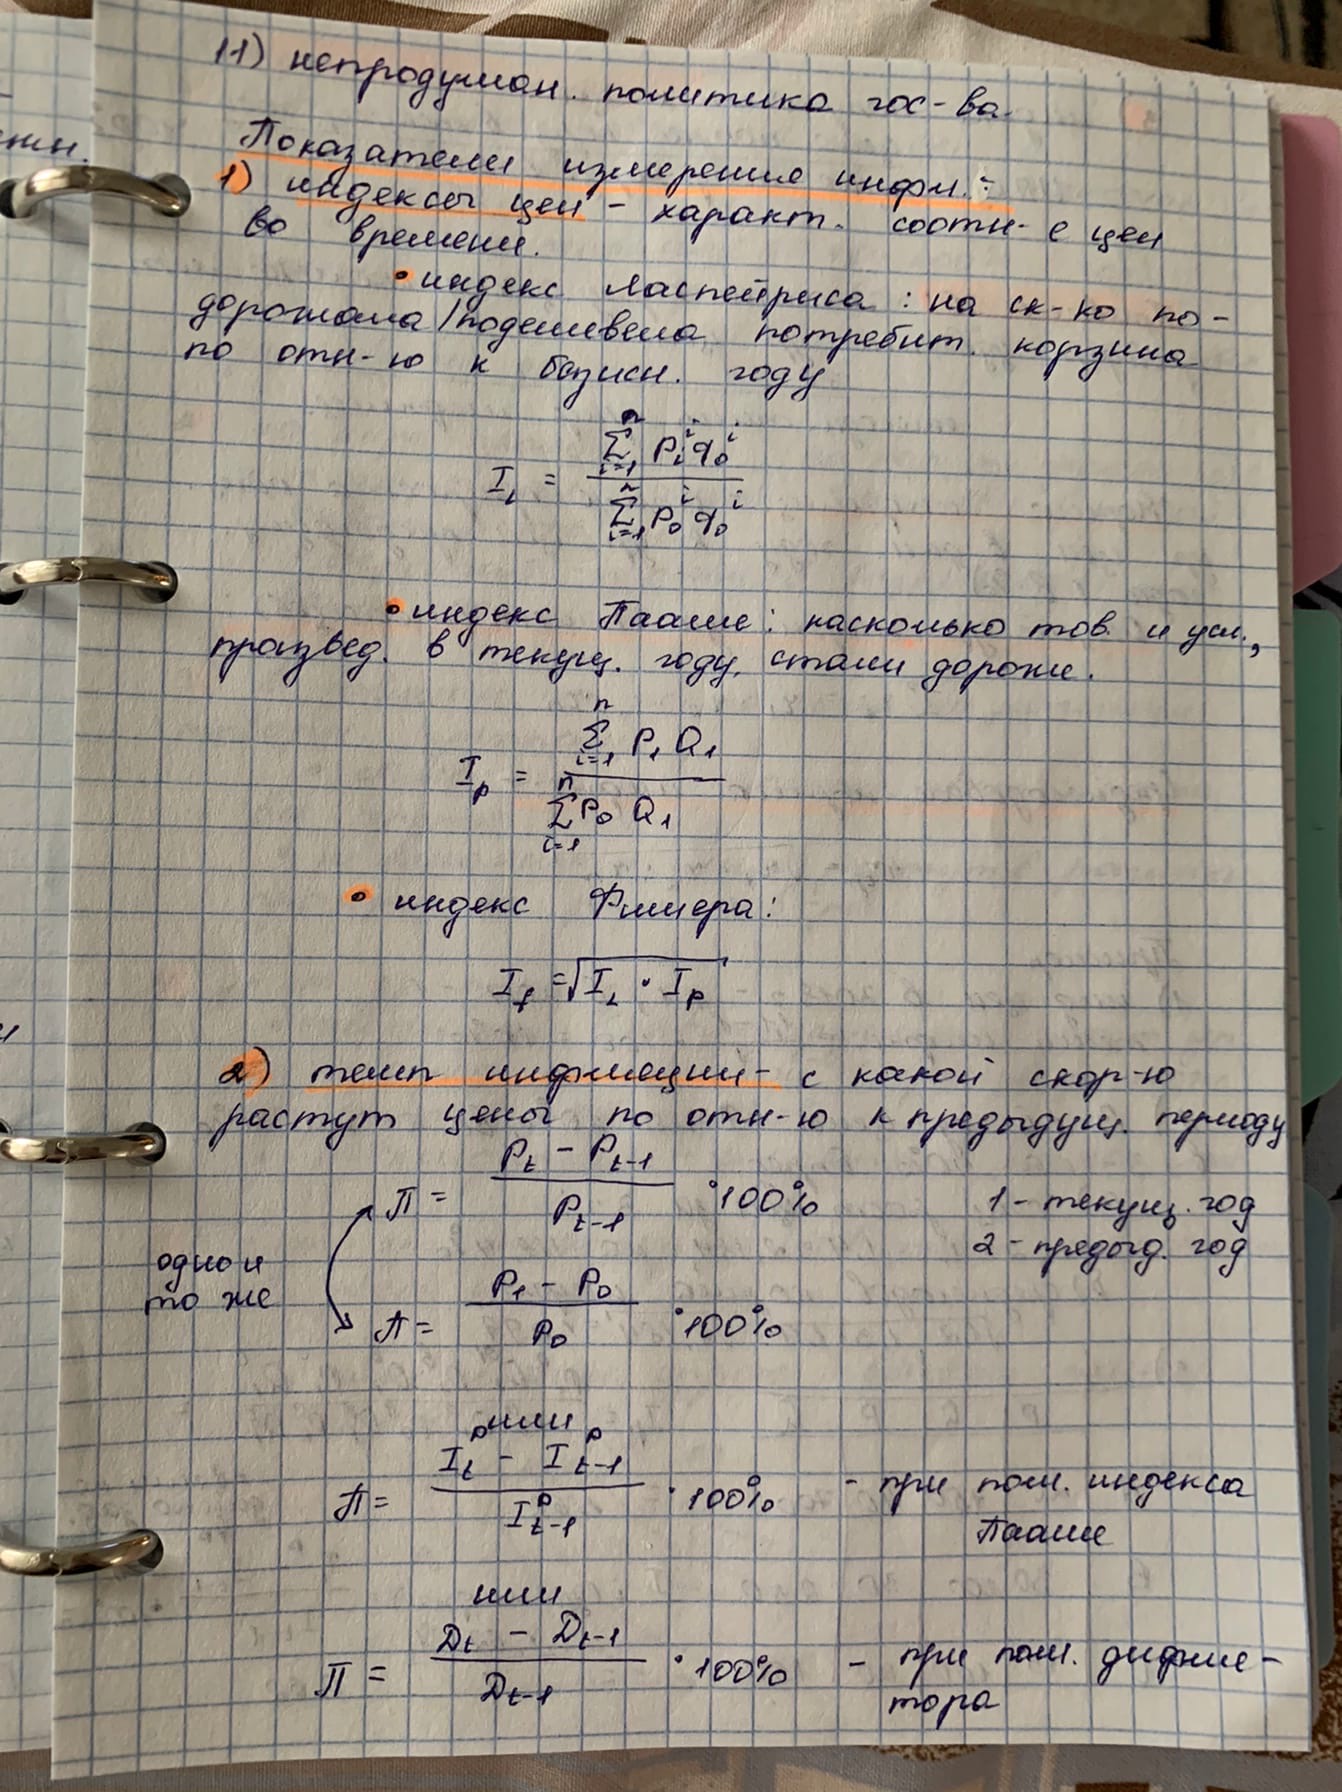 11) непродуман. политика гос-ва.
Показатели измерения инфл.:
1) индексы цен – характ. соотн-е цен
во времени.
• индекс Ласпейриса: на ск-ко по-
дорожала/подешевела потребит. корзина
по отн-ю к базисн. году
I_L = \frac{\sum_{i=1}^{n} P_i^i q_0^i}{\sum_{i=1}^{n} P_0^i q_0^i}
• индекс Пааше: насколько тов. и усл.,
произвед. в текущ. году, стали дороже.
I_p = \frac{\sum_{i=1}^{n} P_1 Q_1}{\sum_{i=1}^{n} P_0 Q_1}
• индекс Фишера:
I_f = \sqrt{I_L · I_p}
2) темп инфляции – с какой скор-ю
растут цены по отн-ю к предыдущ. периоду
П = \frac{P_t - P_{t-1}}{P_{t-1}} · 100%
1 – текущ. год
2 – предыд. год
одно и
то же
П = \frac{P_1 - P_0}{P_0} · 100%
или
П = \frac{I_t^p - I_{t-1}^p}{I_{t-1}^p} · 100% – при пом. индекса
Пааше
или
П = \frac{D_t - D_{t-1}}{D_{t-1}} · 100% – при пом. дефля-
тора